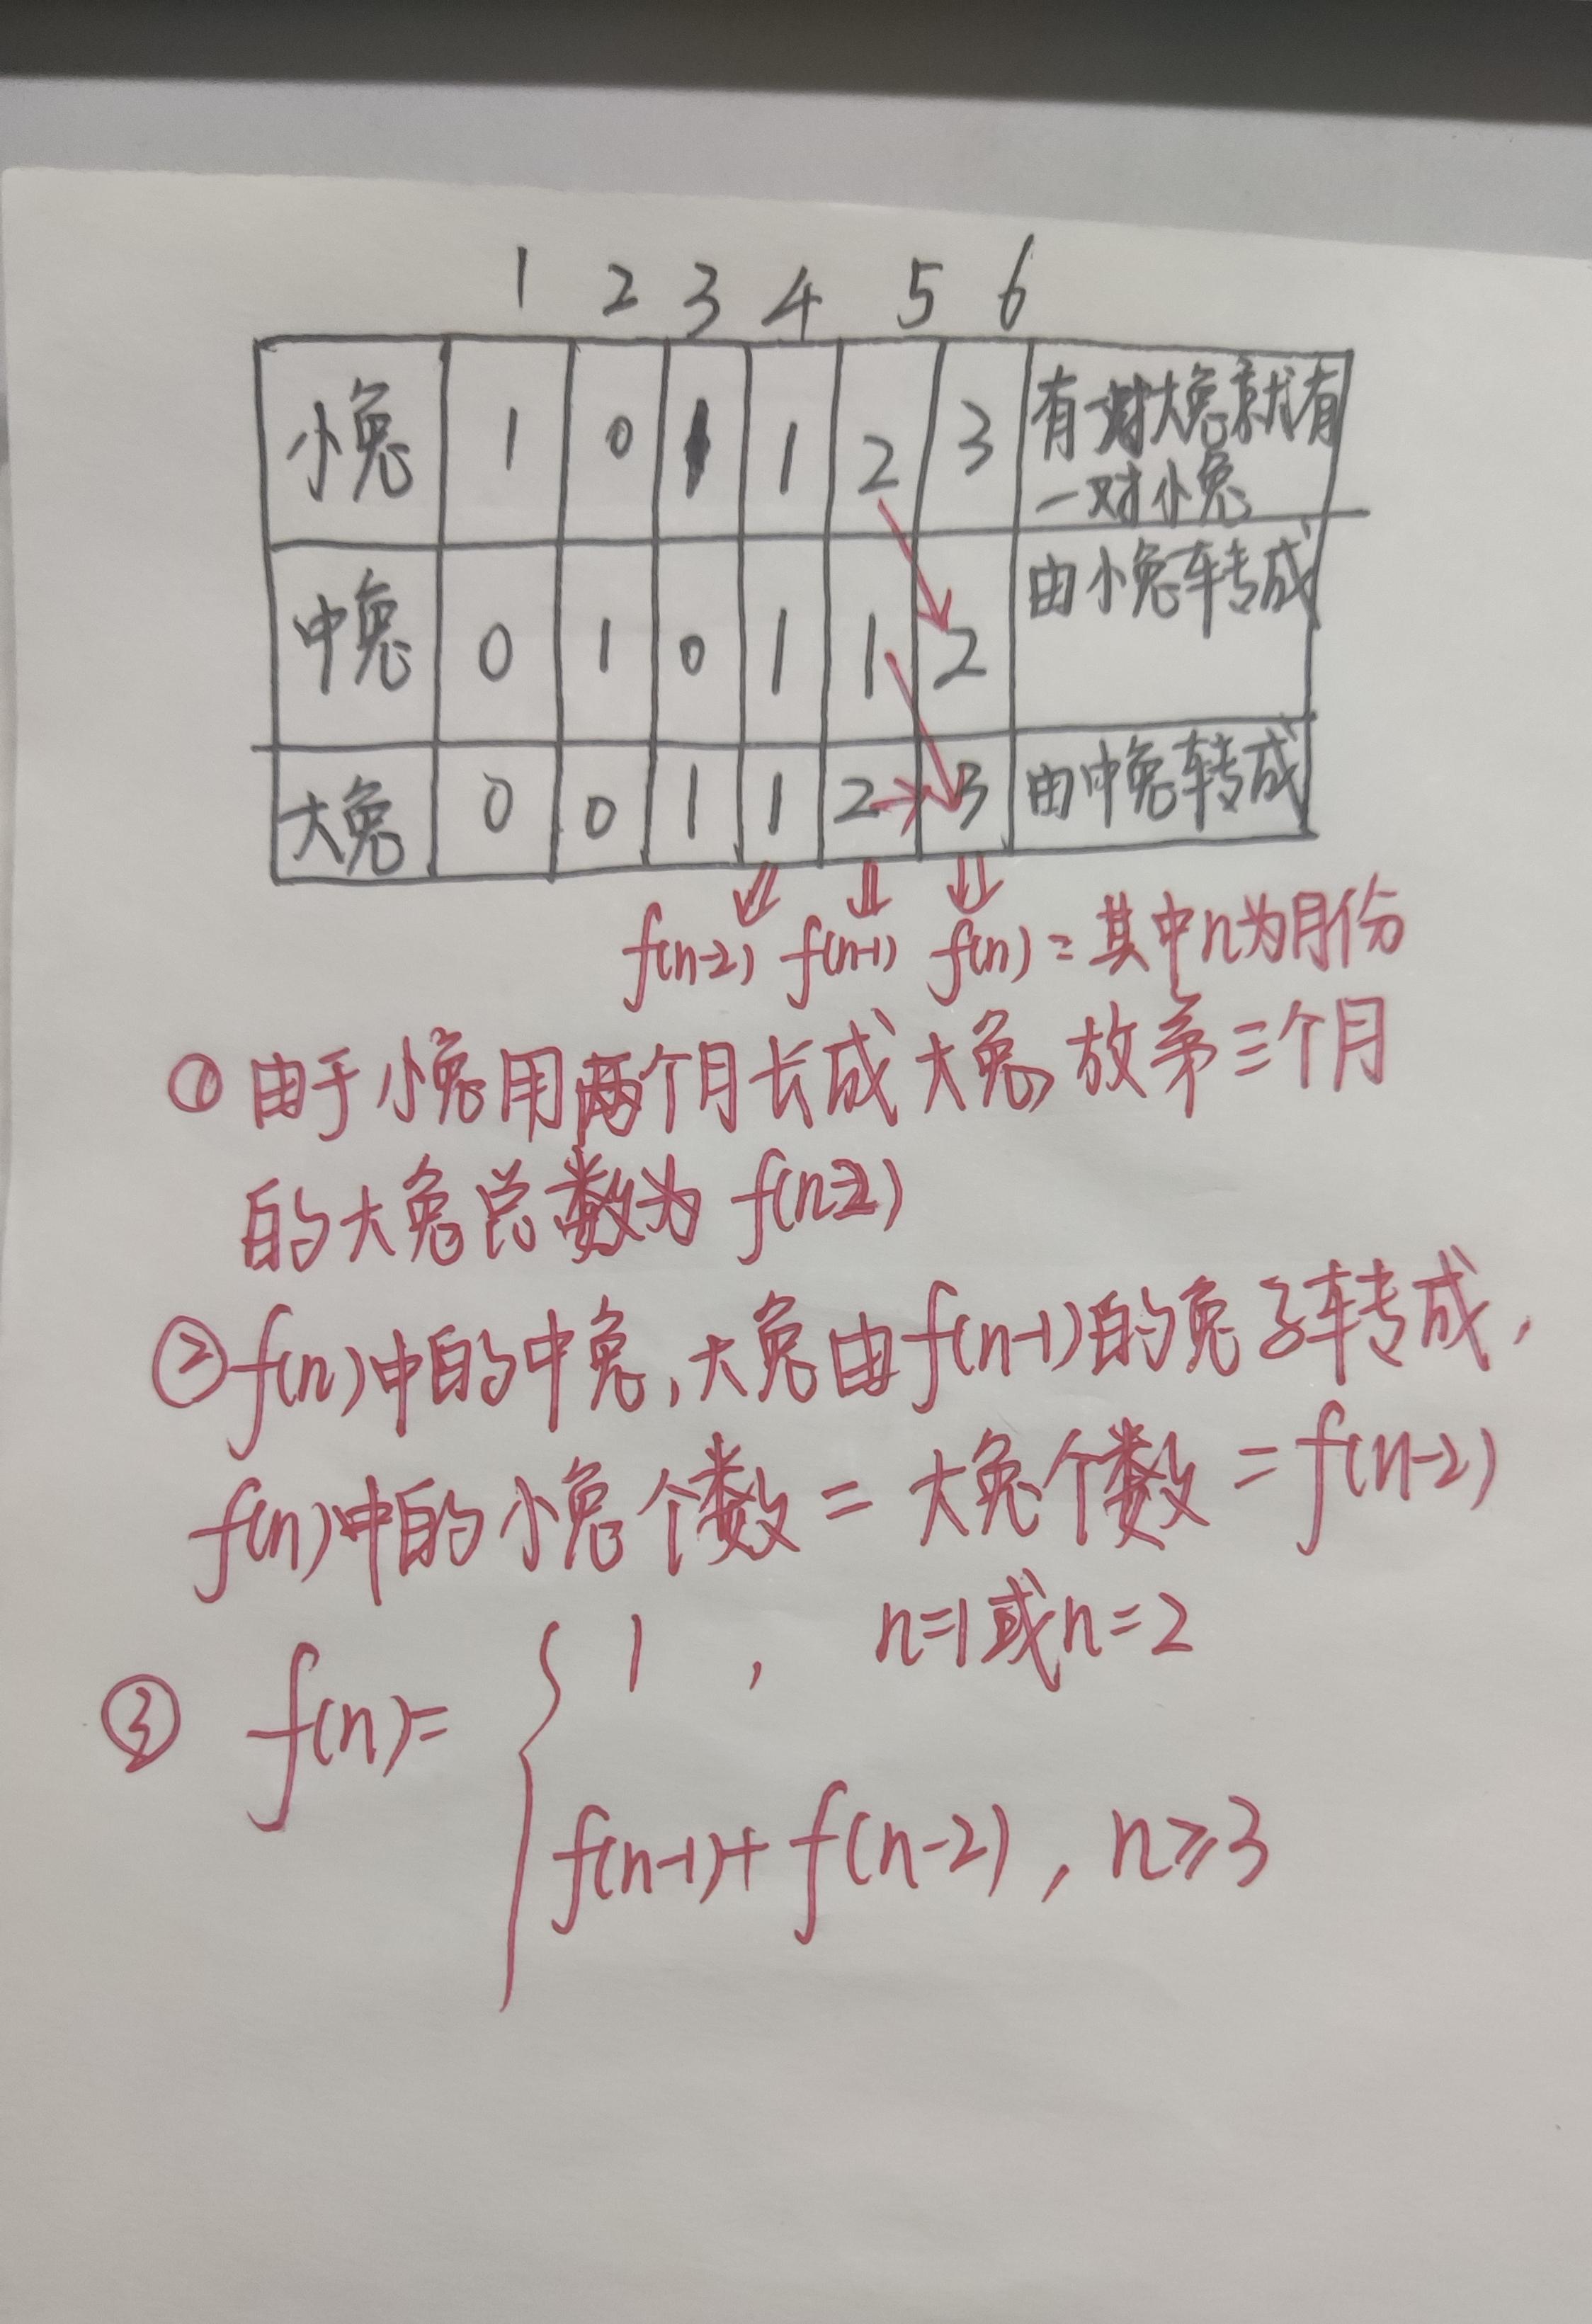 1 2 3 4 5 6
小兔 1 0 1 1 2 3 有一对大兔就有
一对小兔
中兔 0 1 0 1 1 2 由小兔转成
大兔 0 0 1 1 2 3 由中兔转成
f(n-2) f(n-1) f(n) = 其中n为月份
① 由于小兔用两个月长成大兔,故第三个月
的大兔总数为 f(n-2)
② f(n)中的中兔、大兔由f(n-1)的兔子转成,
f(n)中的小兔个数 = 大兔个数 = f(n-2)
1 , n=1或n=2
③ f(n)= {
f(n-1)+f(n-2), n≥3